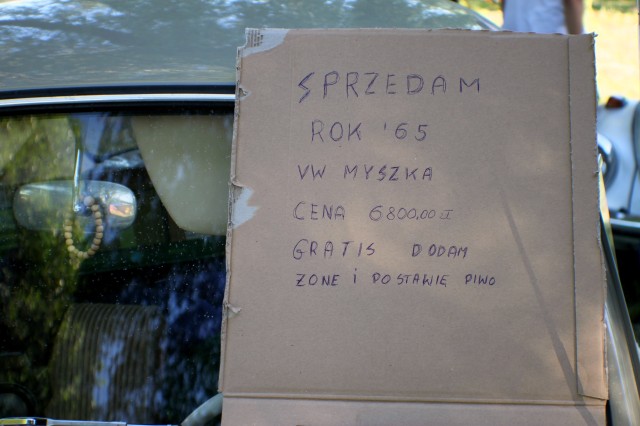 SPRZEDAM
ROK '65
VW MYSZKA
CENA 6800,00 zł
GRATIS DODAM
ZONE i POSTAWIĘ PIWO